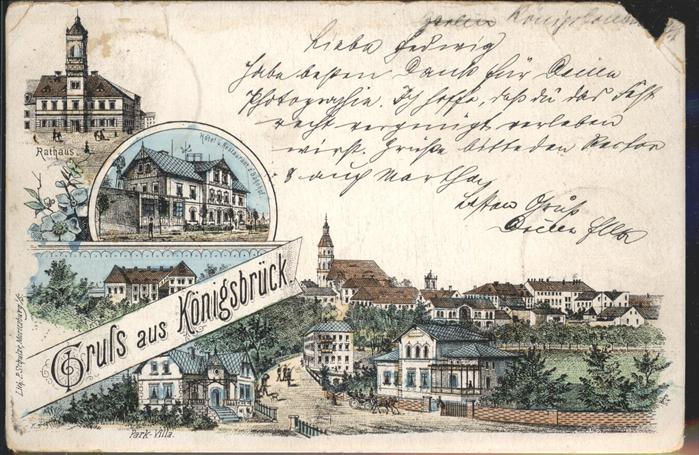 Königsbrück
Liebe Hedwig
Habe besten Dank für Deine
Photographie. Ich hoffe, daß du das Fest
recht vergnügt verleben
wirst. Grüße bitte den
& auch Martha.
besten Gruß
Deine Ella
Rathaus.
Hôtel u. Restaurant z. Bahnhof
Gruss aus Königsbrück.
Park-Villa.